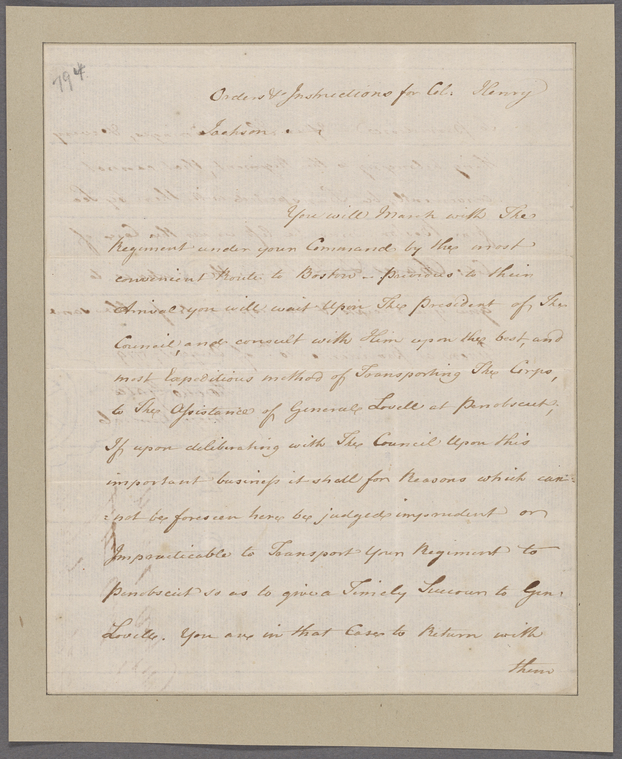 794
Orders & Instructions for Col. Henry
Jackson.
You will March with The
Regiment under your Command by the most
convenient Route to Boston – Previous to their
Arrival you will wait Upon The President of The
Council, and consult with Him upon the best, and
most Expeditious method of Transporting The Corps,
to The Assistance of General Lovell at Penobscut,
If upon deliberating with The Council Upon this
important business it shall for Reasons which can-
not be foreseen here be judged imprudent or
Impracticable to Transport Your Regiment to
Penobscut so as to give a Timely Succour to Gen.
Lovell. You are in that Case to Return with
them